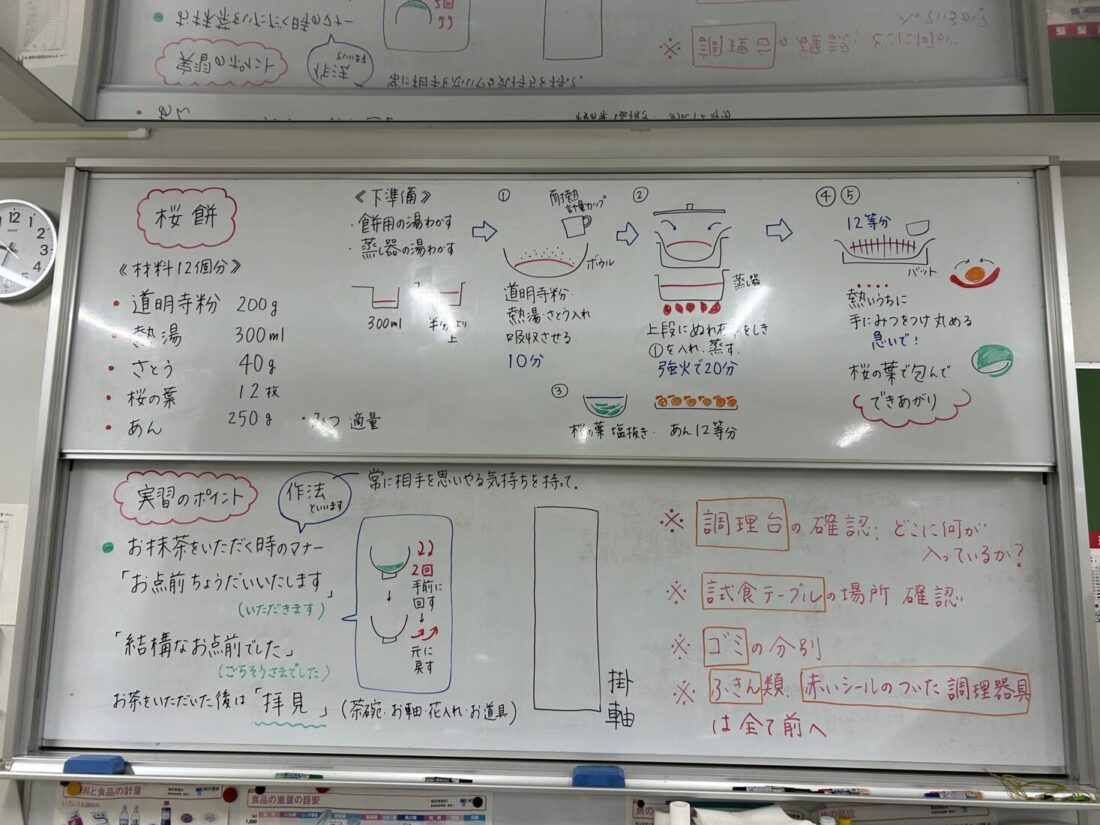 桜餅
《材料12個分》
・道明寺粉 200g
・熱湯 300ml
・さとう 40g
・桜の葉 12枚
・あん 250g
・みつ 適量
《下準備》
・餅用の湯わかす
・蒸し器の湯わかす
300ml
①
耐熱
計量カップ
ボウル
道明寺粉
熱湯・さとう入れ
吸収させる
10分
②
蒸器
上段にぬれ
をしき
①を入れ.蒸す.
強火で20分
③
桜の葉 塩抜き.
あん12等分
④ ⑤
12等分
バット
熱いうちに
手にみつをつけ丸める
急いで!
桜の葉で包んで
できあがり
実習のポイント
作法
といいます
常に相手を思いやる気持ちを持って.
● お抹茶をいただく時のマナー
「お点前ちょうだいいたします」
(いただきます)
「結構なお点前でした」
(ごちそうさまでした)
お茶をいただいた後は「拝見」(茶碗・お軸・花入れ・お道具)
2回
手前に
回す
↓
元に
戻す
掛
軸
※ 調理台の確認:どこに何が
入っているか?
※ 試食テーブルの場所 確認
※ ゴミの分別
※ ふきん類.赤いシールのついた調理器具
は全て前へ
料と食品の計量
食品の重量の目安